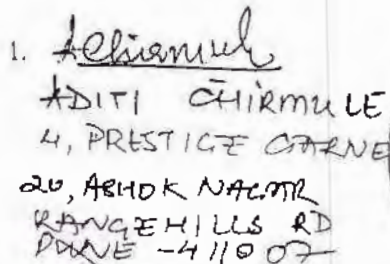 1. AChirmule
ADITI CHIRMULE
4, PRESTIGE GARNE
20, ASHOK NAGAR
RANGEHILLS RD
PUNE -411007